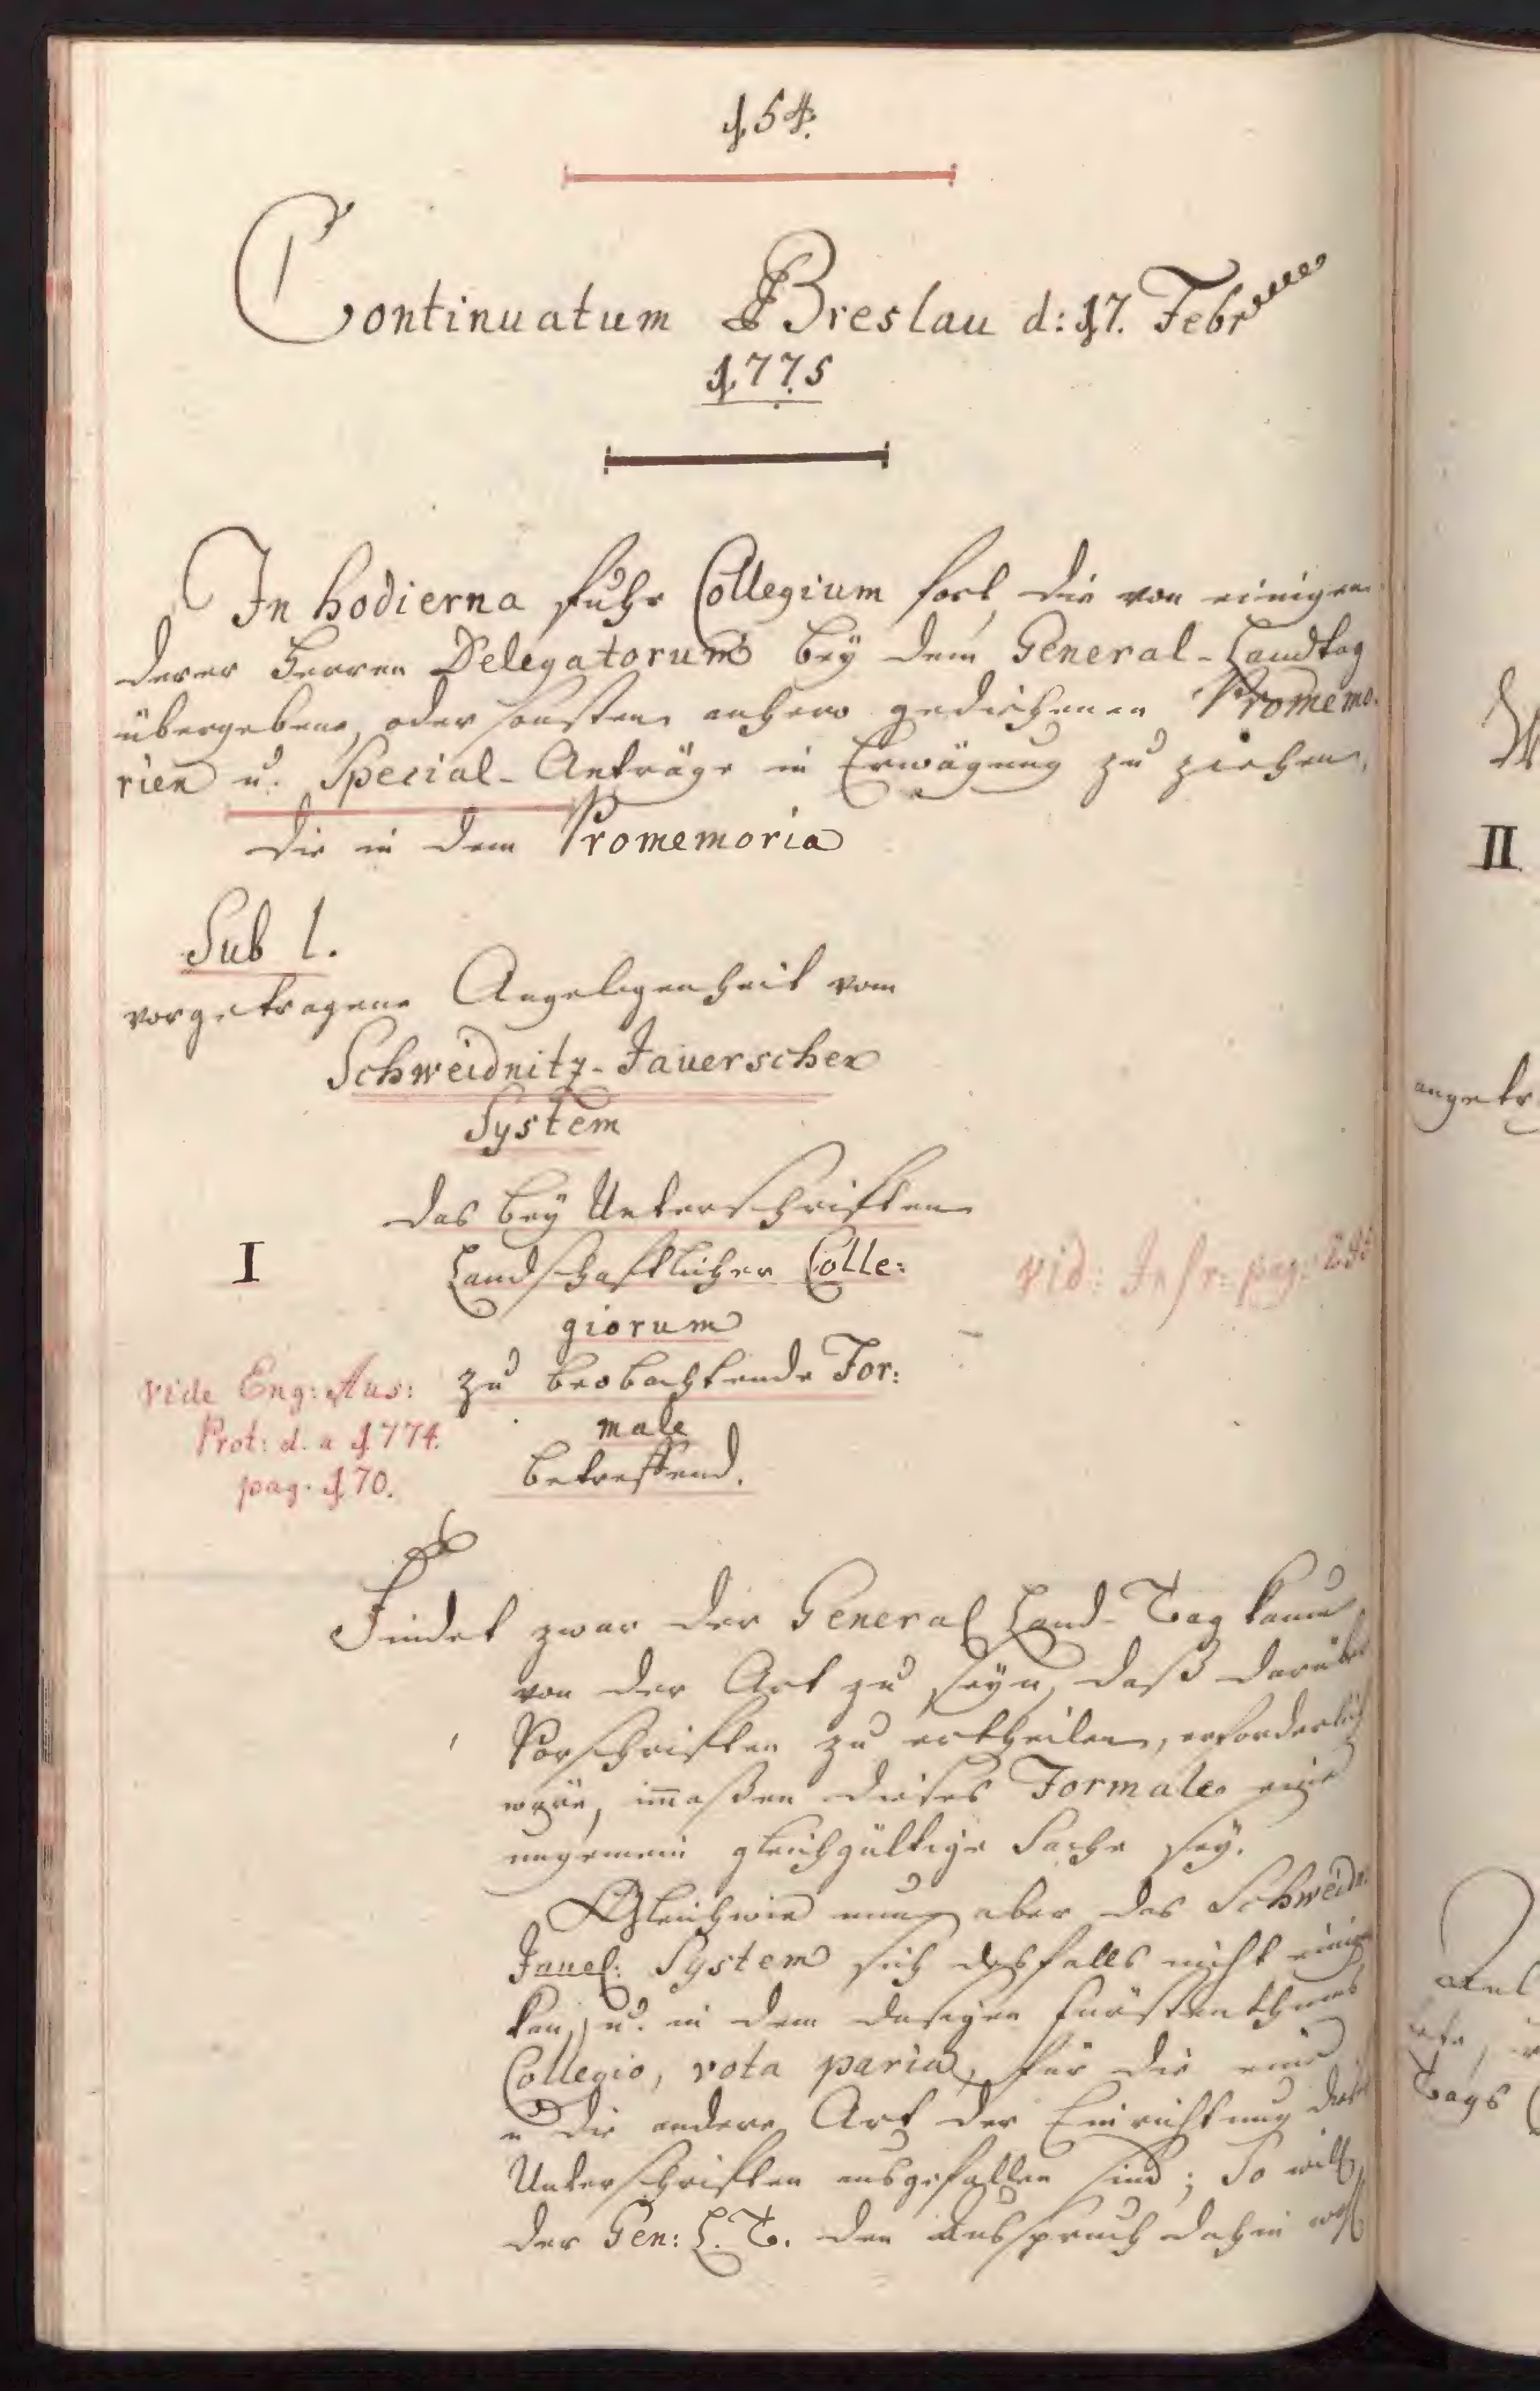 154.
Continuatum Breslau d: 17. Febr
1775
In hodierna fuhr Collegium fort, die von einigen
derer Herren Delegatorum bey dem General-Landtag
übergebene, oder sonsten anhero gediehenen Promemo-
rien u. Special-Anträge in Erwägung zu ziehen,
Die in dem Promemoria
Sub 1.
vorgetragene Angelegenheit vom
Schweidnitz-Jauerschen
System
das bey Unterschriften
I
Landschaftlicher Colle:
vid: Infr: pag:
giorum
vide Eng: Aus:
zu beobachtende For:
Prot: d. a 1774.
male
pag. 170.
betreffend.
Findet zwar der General Land-Tag kaum
von der Art zu seyn, daß darüber
Vorschriften zu ertheilen, erforderlich
wäre, im̄aßen dieses Formale eine
ungemein gleichgültige Sache sey.
Gleichwie nun aber das Schweidn:
Jauel: System sich desfalls nicht einigen
kan, u. in dem dasigen Fürstenthums
Collegio, vota paria, für die eine
u die andere Art der Einrichtung dieser
Unterschriften ausgefallen sind; So will
der Gen: L. T. den Ausspruch dahin
II
angetr
Tags